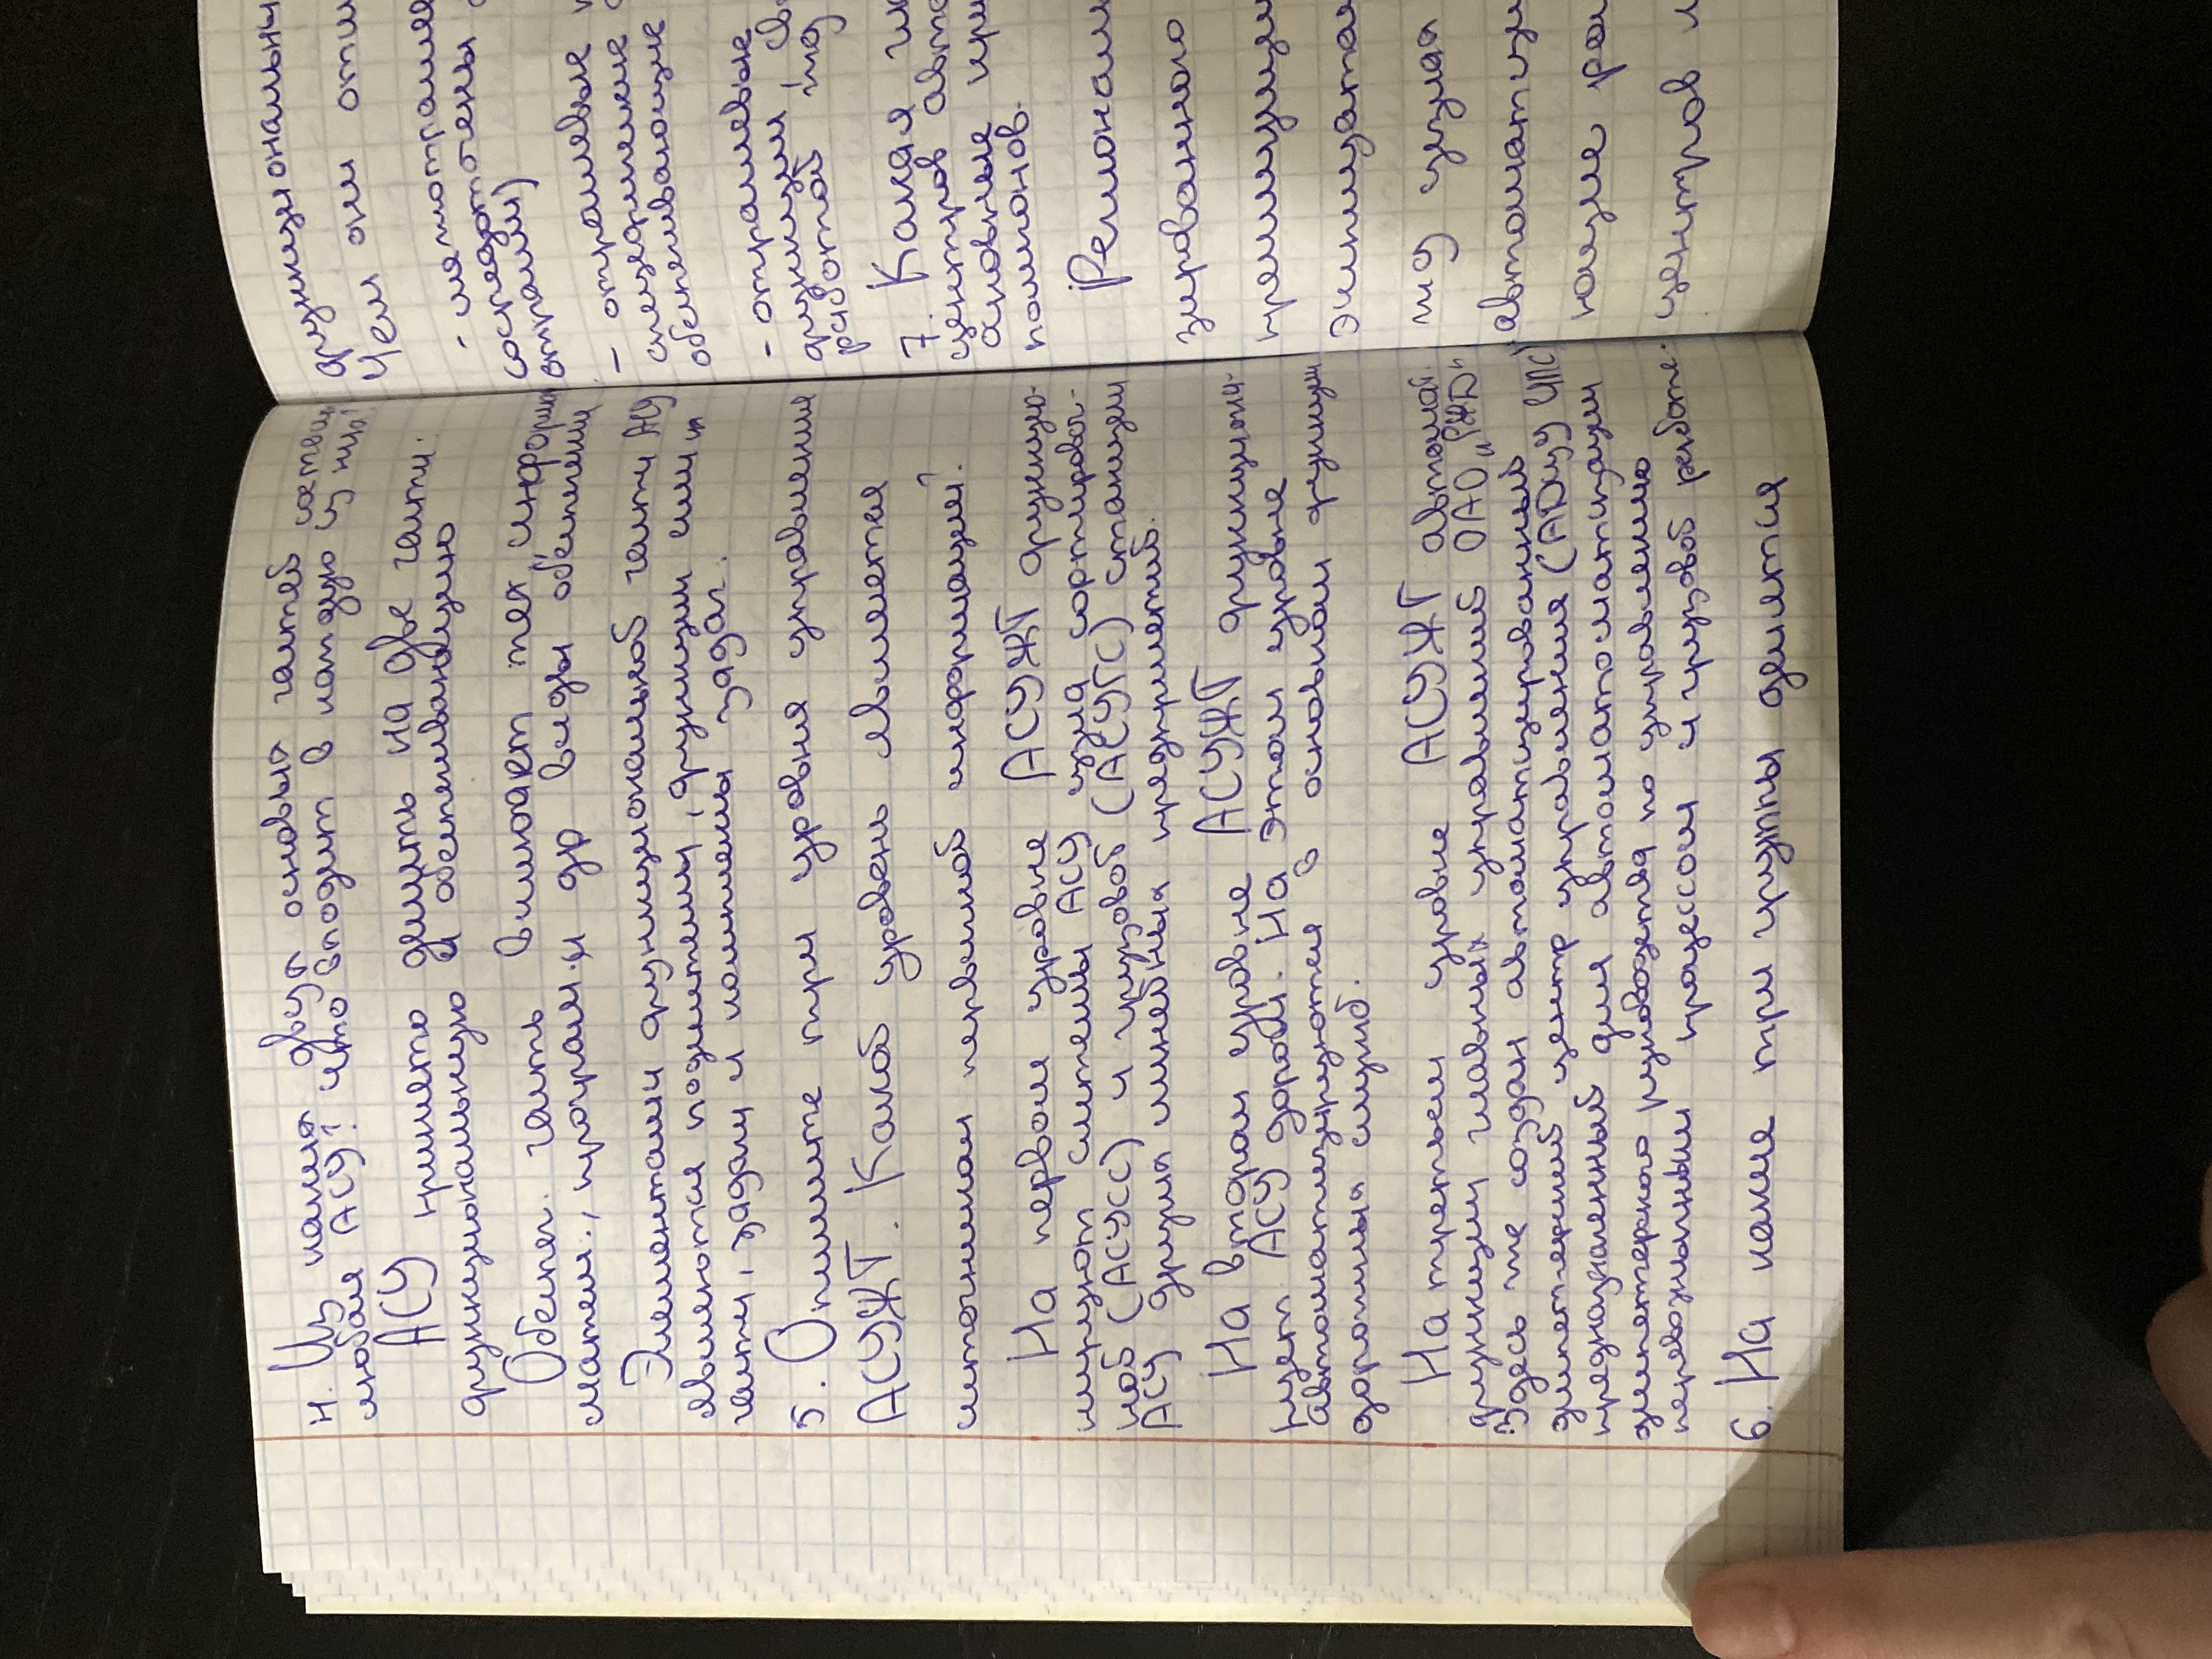 4. Из каких двух основых частей состоит
любая АСУ? что входит в каждую из них?
АСУ принято делить на две части.
функциональную и обеспечивающую
Обеспеч. часть включает тех информ
матем., програм. и др виды обеспечения
Элементами функциональной части АСУ
являются подсистемы, функции или их
части, задачи и комплексы задач.
5. Опишите три уровня управления
АСУЖТ. Какой уровень является
источником первичной информации?
На первом уровне АСУЖТ функцио-
нируют системы АСУ узла сортировоч-
ной (АСУСС) и грузовой (АСУГС) станции
АСУ других линейных предприятий.
На втором уровне АСУЖТ функциони-
рует АСУ дороги. На этом уровне
автоматизируются в основном функции
дорожных служб.
На третьем уровне АСУЖТ автомат.
функции главных управлений ОАО „РЖД"
Здесь же создан автоматизированый
диспетчерский центр управления (АДЦУ ЦПС)
предназначенный для автоматизации
диспетчерского руководства по управлению
перевозочным процессом и грузовой работе.
6. На какие три группы делятся
функциональны
Чем они отли
- межотраслев
сосредоточены
отрасли)
- отраслевые
специфические
обеспечивающие
- отраслевые
функции св
работой под
7. Какая
центров авто
основные при
полигонов.
Регионали
зированного
реализации
эксплуатаи
под узлах
автоматизи
ющие рег
центров и